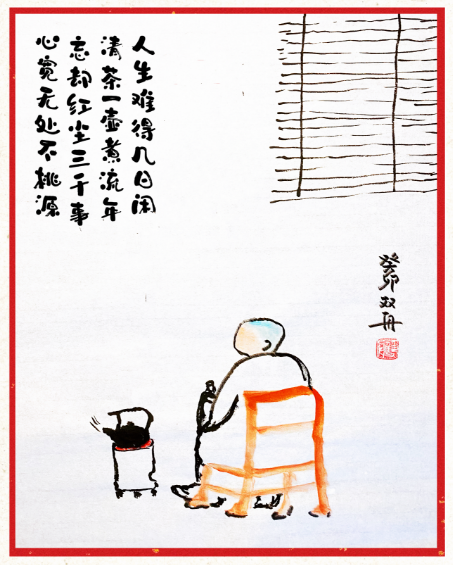 人生难得几日闲
清茶一壶煮流年
忘却红尘三千事
心宽无处不桃源
癸卯双舟